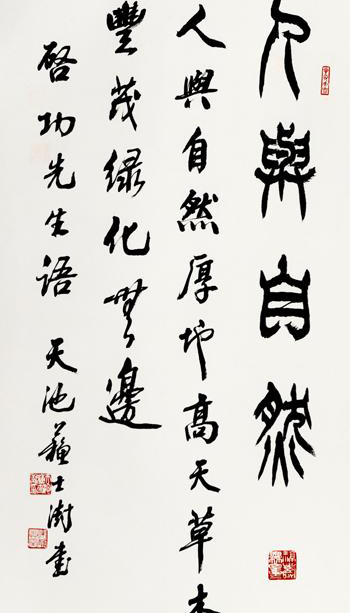 人與自然
人與自然厚坤高天草木
豐茂綠化無邊
啓功先生語 天池蘇士澍書